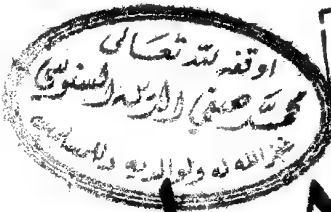 اوقفه لله تعالى
محمد حسني الاربلي السنوسي
غفر الله له ولوالديه وللمسلمين